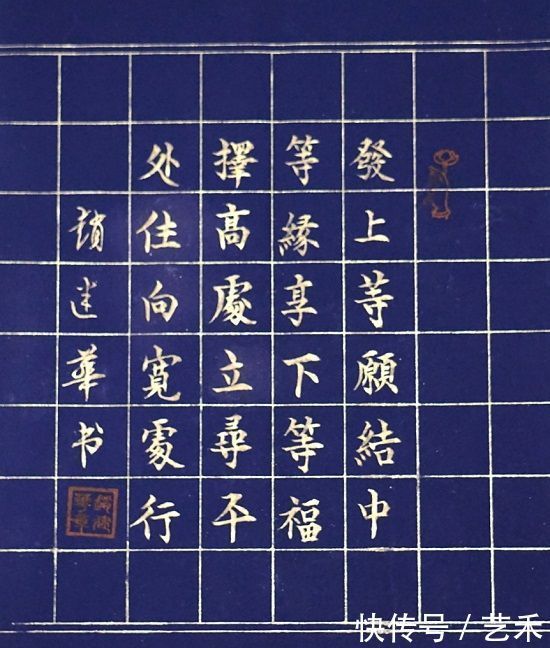 發上等願結中
等縁享下等福
擇高處立尋平
处住向寬處行
華书
快传号 / 艺禾